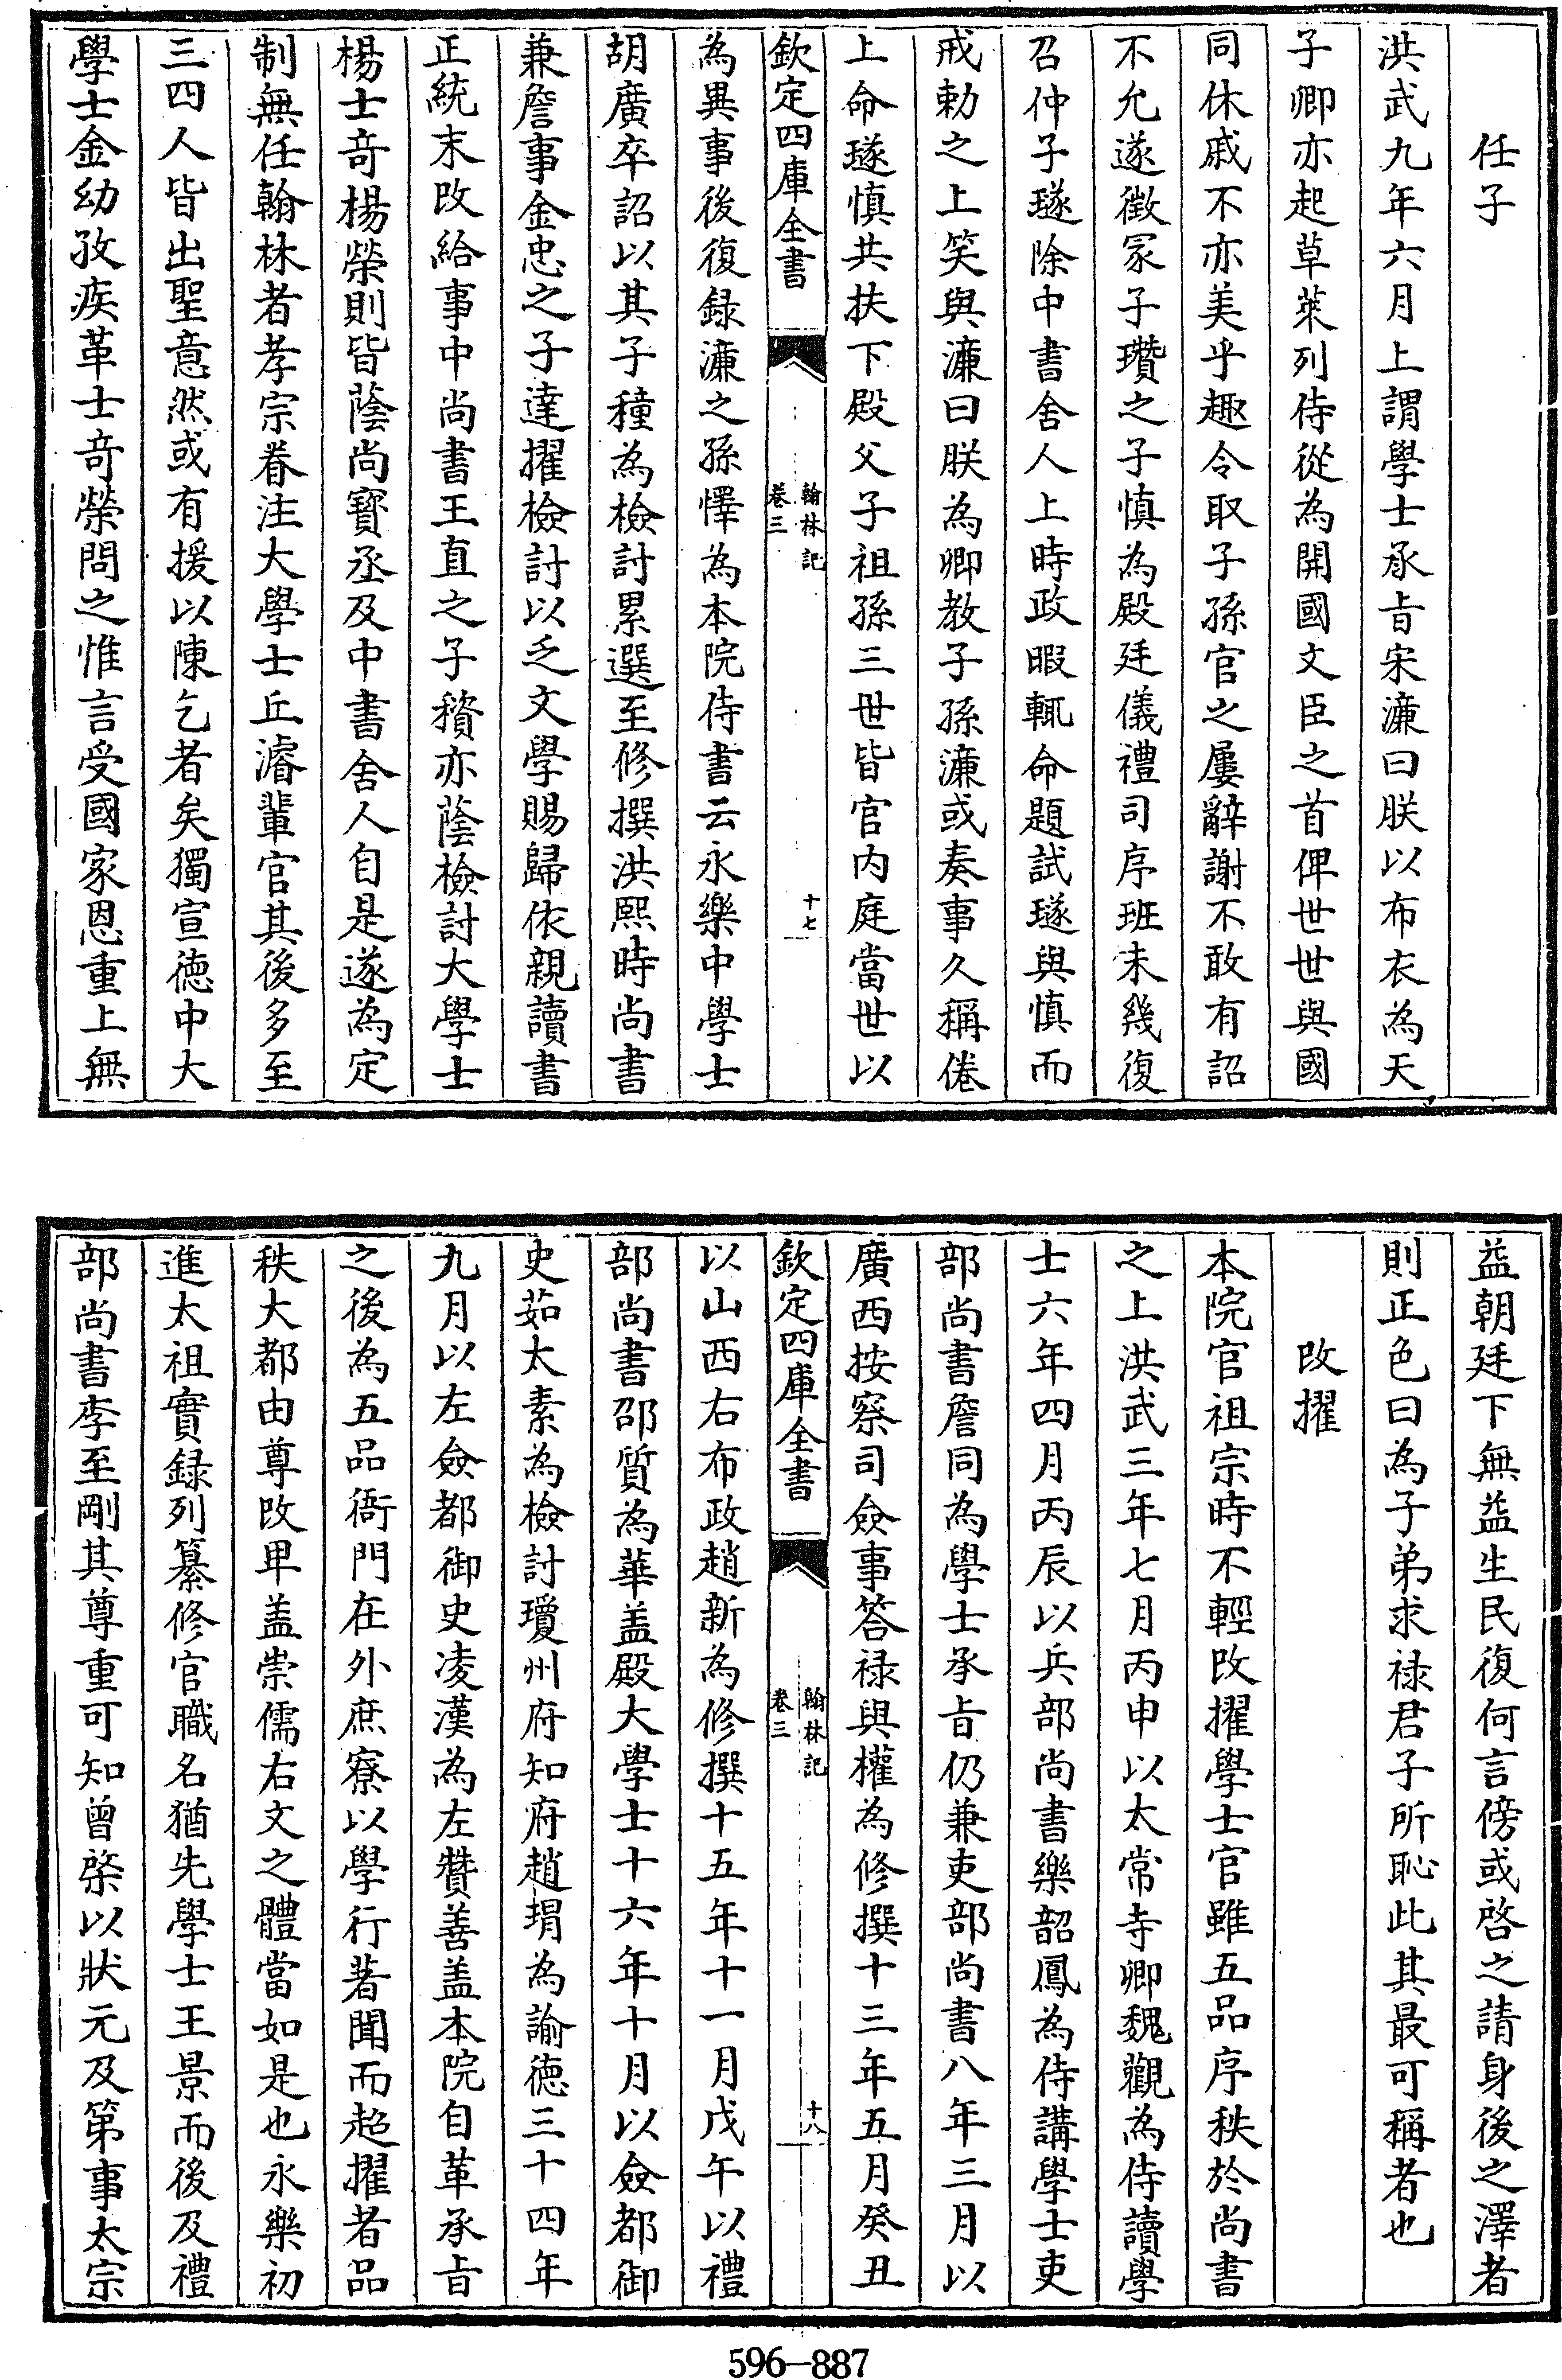 任子
洪武九年六月上謂學士承旨宋濂曰朕以布衣為天
子卿亦起草萊列侍從為開國文臣之首俾世世與國
同休戚不亦美乎趣令取子孫官之屢辭謝不敢有詔
不允遂徵冢子瓚之子慎為殿廷儀禮司序班未幾復
召仲子璲除中書舍人上時政暇輒命題試璲與慎而
戒勅之上笑與濂曰朕為卿教子孫濂或奏事久稱倦
上命璲慎共扶下殿父子祖孫三世皆官内庭當世以
欽定四庫全書
翰林記
卷三
十七
為異事後復録濂之孫懌為本院侍書云永樂中學士
胡廣卒詔以其子穜為檢討累選至修撰洪熙時尚書
兼詹事金忠之子達擢檢討以乏文學賜歸依親讀書
正統末改給事中尚書王直之子𥡜亦蔭檢討大學士
楊士奇楊榮則皆蔭尚寳丞及中書舍人自是遂為定
制無任翰林者孝宗眷注大學士丘濬輩官其後多至
三四人皆出聖意然或有援以陳乞者矣獨宣徳中大
學士金幼孜疾革士奇榮問之惟言受國家恩重上無
益朝廷下無益生民復何言傍或啓之請身後之澤者
則正色曰為子弟求禄君子所恥此其最可稱者也
改擢
本院官祖宗時不輕改擢學士官雖五品序秩於尚書
之上洪武三年七月丙申以太常寺卿魏觀為侍讀學
士六年四月丙辰以兵部尚書樂韶鳳為侍講學士吏
部尚書詹同為學士承旨仍兼吏部尚書八年三月以
廣西按察司僉事答禄與權為修撰十三年五月癸丑
欽定四庫全書
翰林記
卷三
十八
以山西右布政趙新為修撰十五年十一月戊午以禮
部尚書邵質為華盖殿大學士十六年十月以僉都御
史茹太素為檢討瓊州府知府趙瑁為諭徳三十四年
九月以左僉都御史凌漢為左贊善盖本院自革承旨
之後為五品衙門在外庶寮以學行著聞而超擢者品
秩大都由尊改卑盖崇儒右文之體當如是也永樂初
進太祖實録列纂修官職名猶先學士王景而後及禮
部尚書李至剛其尊重可知曾棨以狀元及第事太宗
596—887